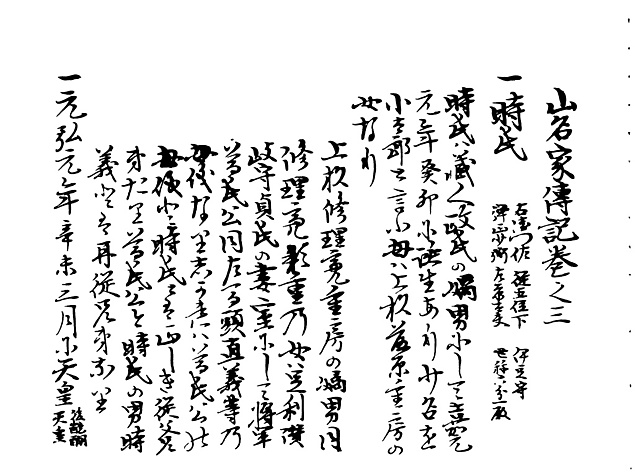 山名家傳記巻之三
一時氏 右衛門佐 従五位下 伊豆守
弾正少弼 左京大夫 世称六分一殿
時氏ハ蔵人政氏の嫡男にして嘉元
元年癸卯に誕生あり幼名を
小太郎と言ふ母ハ上杉藤原重房の
女なり
上杉修理亮重房の嫡男同
修理亮頼重乃女ハ足利讃
岐守貞氏の妻室にして将軍
尊氏公同左馬頭直義等乃
母儀なり志かれハ尊氏公の
母儀と時氏とは正しき従父兄
弟たり尊氏公と時氏の男時
義とは再従兄弟なり
一元弘元年辛未三月に天皇 後醍醐天皇